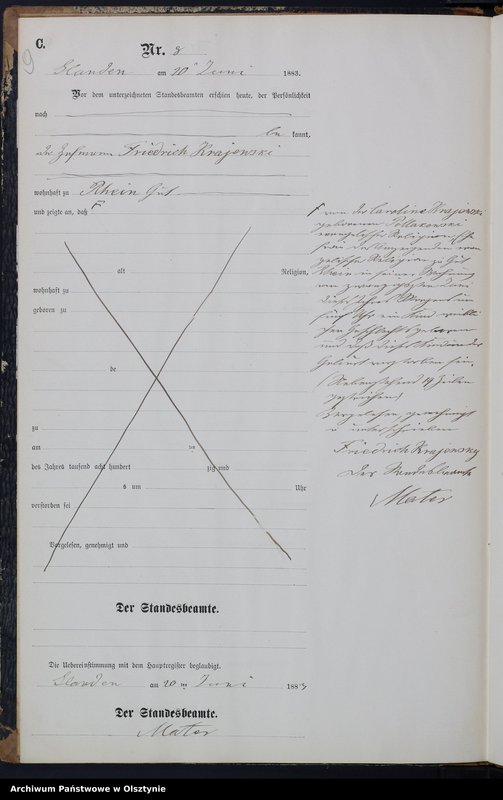 C.
9
Nr. 8
Glanden am 20 ten Juni 1883.
Vor dem unterzeichneten Standesbeamten erschien heute, der Persönlichkeit
nach
be kannt,
der Hofmann Friedrich Krajewski
wohnhaft zu Rhein Gut
und zeigte an, daß
alt Religion,
wohnhaft zu
geboren zu
de
zu
am ten
des Jahres tausend acht hundert zig und
s um Uhr
verstorben sei
Vorgelesen, genehmigt und
Der Standesbeamte.
Die Uebereinstimmung mit dem Hauptregister beglaubigt.
Glanden am 20 ten Juni 1883
Der Standesbeamte.
Mater
von der Caroline Krajewski
geborenen
evangelischer Religion,
Religion zu Gut
Rhein in seiner Wohnung
Juni
dieses Jahres Morgens um
fünf Uhr ein Kind
chen Geschlechts geboren
und daß dieses Kind in der
Geburt verstorben sei.
(Nebenstehend 19 Zeilen
gestrichen)
Vorgelesen, genehmigt
u unterschrieben
Friedrich Krajewsky
Der Standesbeamte
Mater
Archiwum Państwowe w Olsztynie